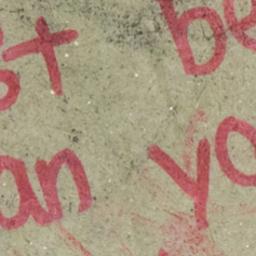 st be
an yo